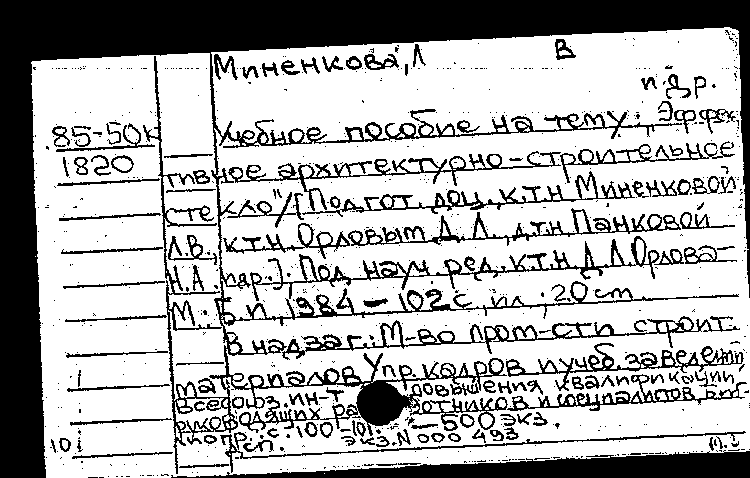 Миненкова, Л В
и др.
85-50к Учебное пособие на тему: „Эффек
1820 тивное архитектурно-строительное
стекло"/[Подгот. доц., к.т.н Миненковой
Л.В., к.т.н. Орловым Д.Л., д.т.н Панковой
Н.А. пар.]; Под науч. ред. к.т.н Д.Л.Орлова-
М.: Б.и., 1984 - 102 с, ил ; 20 cm.
В надзаг.: М-во пром-сти строит.
материалов Упр. кадров и учеб. заведений
Всесоюз. ин-т повышения квалификации
руководящих работников и специалистов.
с. 100-101. - 500 экз.
Дсп. экз. N 000 493.
10